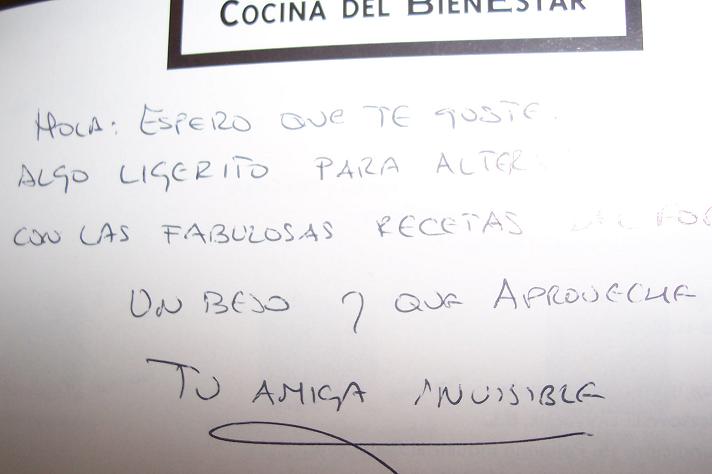 COCINA DEL BIENESTAR
HOLA: ESPERO QUE TE GUSTE.
ALGO LIGERITO PARA
CON LAS FABULOSAS RECETAS
UN BESO Y QUE APROVECHE
TU AMIGA INVISIBLE